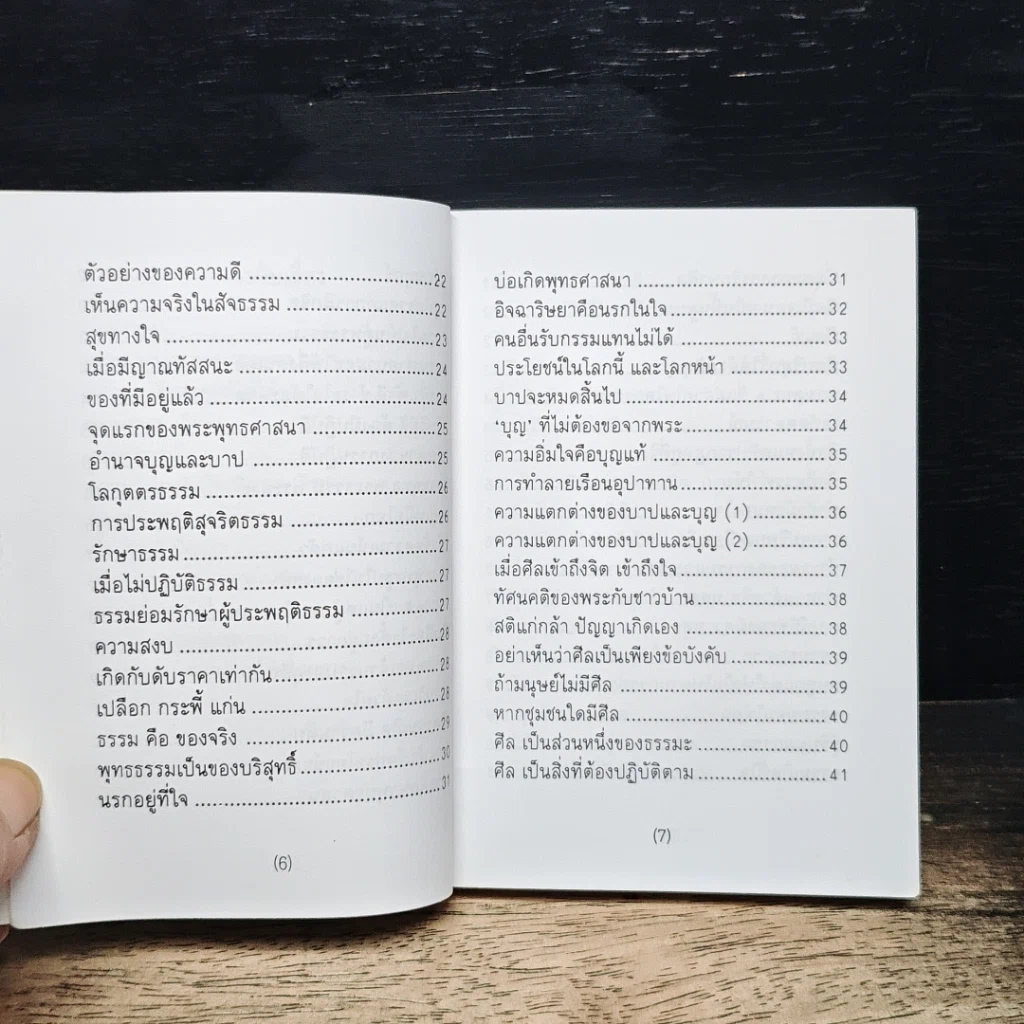 ตัวอย่างของความดี ........................................ 22
เห็นความจริงในสัจธรรม ........................................ 22
สุขทางใจ ........................................ 23
เมื่อมีญาณทัสสนะ ........................................ 24
ของที่มีอยู่แล้ว ........................................ 24
จุดแรกของพระพุทธศาสนา ........................................ 25
อำนาจบุญและบาป ........................................ 25
โลกุตตรธรรม ........................................ 26
การประพฤติสุจริตธรรม ........................................ 26
รักษาธรรม ........................................ 27
เมื่อไม่ปฏิบัติธรรม ........................................ 27
ธรรมย่อมรักษาผู้ประพฤติธรรม ........................................ 27
ความสงบ ........................................ 28
เกิดกับดับราคาเท่ากัน ........................................ 28
เปลือก กระพี้ แก่น ........................................ 28
ธรรม คือ ของจริง ........................................ 29
พุทธธรรมเป็นของบริสุทธิ์ ........................................ 30
นรกอยู่ที่ใจ ........................................ 31
(6)
บ่อเกิดพุทธศาสนา ........................................ 31
อิจฉาริษยาคือนรกในใจ ........................................ 32
คนอื่นรับกรรมแทนไม่ได้ ........................................ 33
ประโยชน์ในโลกนี้ และโลกหน้า ........................................ 33
บาปจะหมดสิ้นไป ........................................ 34
‘บุญ’ ที่ไม่ต้องขอจากพระ ........................................ 34
ความอิ่มใจคือบุญแท้ ........................................ 35
การทำลายเรือนอุปาทาน ........................................ 35
ความแตกต่างของบาปและบุญ (1) ........................................ 36
ความแตกต่างของบาปและบุญ (2) ........................................ 36
เมื่อศีลเข้าถึงจิต เข้าถึงใจ ........................................ 37
ทัศนคติของพระกับชาวบ้าน ........................................ 38
สติแก่กล้า ปัญญาเกิดเอง ........................................ 38
อย่าเห็นว่าศีลเป็นเพียงข้อบังคับ ........................................ 39
ถ้ามนุษย์ไม่มีศีล ........................................ 39
หากชุมชนใดมีศีล ........................................ 40
ศีล เป็นส่วนหนึ่งของธรรมะ ........................................ 40
ศีล เป็นสิ่งที่ต้องปฏิบัติตาม ........................................ 41
(7)